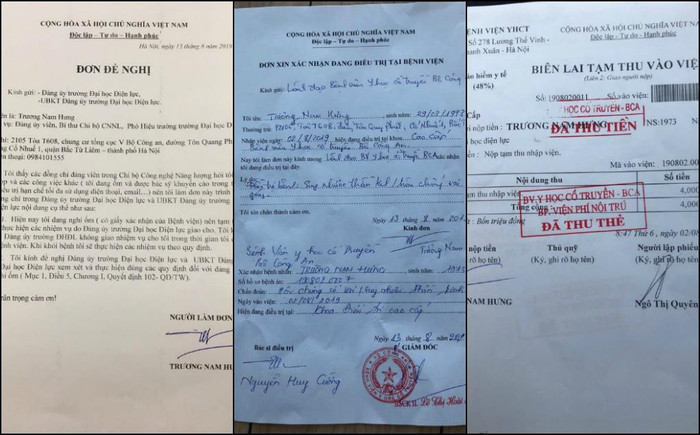 CỘNG HÒA XÃ HỘI CHỦ NGHĨA VIỆT NAM
Độc lập - Tự do - Hạnh phúc
Hà Nội, ngày 13 tháng 8 năm 2019
ĐƠN ĐỀ NGHỊ
Kính gửi: - Đảng ủy trường Đại học Điện lực,
-UBKT Đảng ủy trường Đại học Điện lực.
là: Trương Nam Hưng
vụ: Đảng ủy viên, Bí thư Chi bộ CNNL, Phó Hiệu trưởng trường Đại học
chỉ: 2105 Tòa T608, chung cư tổng cục V Bộ Công an, đường Tôn Quang
Cổ Nhuế 1, quận Bắc Từ Liêm – thành phố Hà Nội
thoại: 0984101555
Tôi thấy các đồng chí đảng viên trong Chi bộ Công nghệ Năng lượng hỏi
và các công việc khác ( tôi đang ốm và được bác sỹ khuyên cáo trong
hạn chế tối đa sử dụng điện thoại, email…) nên tôi làm đơn này trình
đồng chí trong Đảng ủy Đại học Điện lực và UBKT Đảng ủy Đại học Điện
1. Hiện nay tôi đang nghỉ ốm ( có giấy xác nhận của Bệnh viện) nên tạm
thực hiện các nhiệm vụ do Đảng ủy trường Đại học Điện lực giao cho. Tôi
Đảng ủy ĐHĐL không giao nhiệm vụ cho tôi trong thời gian tôi
bệnh viện. Khi khỏi bệnh tôi sẽ thực hiện các nhiệm vụ theo quy định.
2. Tôi kính đề nghị Đảng ủy trường Đại học Điện lực và UBKT Đảng
Đại học Điện lực xem xét và thực hiện đúng các quy định đối với đảng
ốm ( Mục 1, Điều 5, Chương I, Quyết định 102- QĐ/TW).
trân trọng cảm ơn!
NGƯỜI LÀM ĐƠN
TRƯƠNG NAM
CỘNG HÒA XÃ HỘI CHỦ NGHĨA VIỆT NAM
Độc lập - Tự do - Hạnh phúc
ĐƠN XIN XÁC NHẬN ĐANG ĐIỀU TRỊ TẠI BỆNH VIỆN
Kính gửi: Lãnh đạo Bệnh viện Y học cổ truyền Bộ Công
Tôi tên: Trương Nam Hưng sinh năm: 29/03/1973
Thường trú
Nhập viện ngày: 02/8/2019 hiện đang điều trị tại khoa: Cao cấp
Bệnh viện Y học cổ truyền Bộ Công An.
Nay tôi làm đơn này kính mong Lãnh đạo BV Y học cổ truyền BCA xác nhận
tôi đang điều trị tại đây.
Lý do:
Tôi xin chân thành cảm ơn.
Ngày 13 tháng 8 năm
Kính đơn
Trương Nam
Bệnh viện y học cổ truyền
Bộ Công An
Xác nhận bệnh nhân: TRƯƠNG NAM HƯNG sinh năm: 1973
Số hồ sơ bệnh án:
Chẩn đoán:
Ngày vào viện: 02/08/2019
Hiện đang điều trị tại: Khoa Điều trị cao cấp
Ngày 13 tháng 8 năm 2019
Bác sĩ điều trị
GIÁM ĐỐC
Nguyễn Huy Cường
BSCK II. Lê Thị
BỆNH VIỆN YHCT
Số 278 Lương Thế Vinh -
Thanh Xuân - Hà Nội
BIÊN LAI TẠM THU VÀO VIỆ
(Liên 2: Giao người nộp)
bảo hiểm y tế
(48%)
Số: 1908020011
Số vào viện:
HỌC CỔ TRUYỀN - BCA
ĐÃ THU TIỀN
nộp tiền: TRƯƠNG NAM HƯNG NS:1973
Nộp tạm thu nhập viện.
Mã vào viện: 190802.00
Nội dung thu
Số tiền
tạm thu nhập viện
4,000
Tổng cộng
4,000
Bốn triệu đồng
BV.Y HỌC CỔ TRUYỀN - BCA
BP. VIỆN PHÍ NỘI TRÚ
ĐÃ THU THẺ
8:47 Thứ 6 , 02/08
nộp tiền
Thủ quỹ
Người lập phiếu
rõ họ tên)
(Ký, ghi rõ họ tên)
(Ký, ghi rõ họ tên)
NAM HƯNG
Ngô Thị Quyên